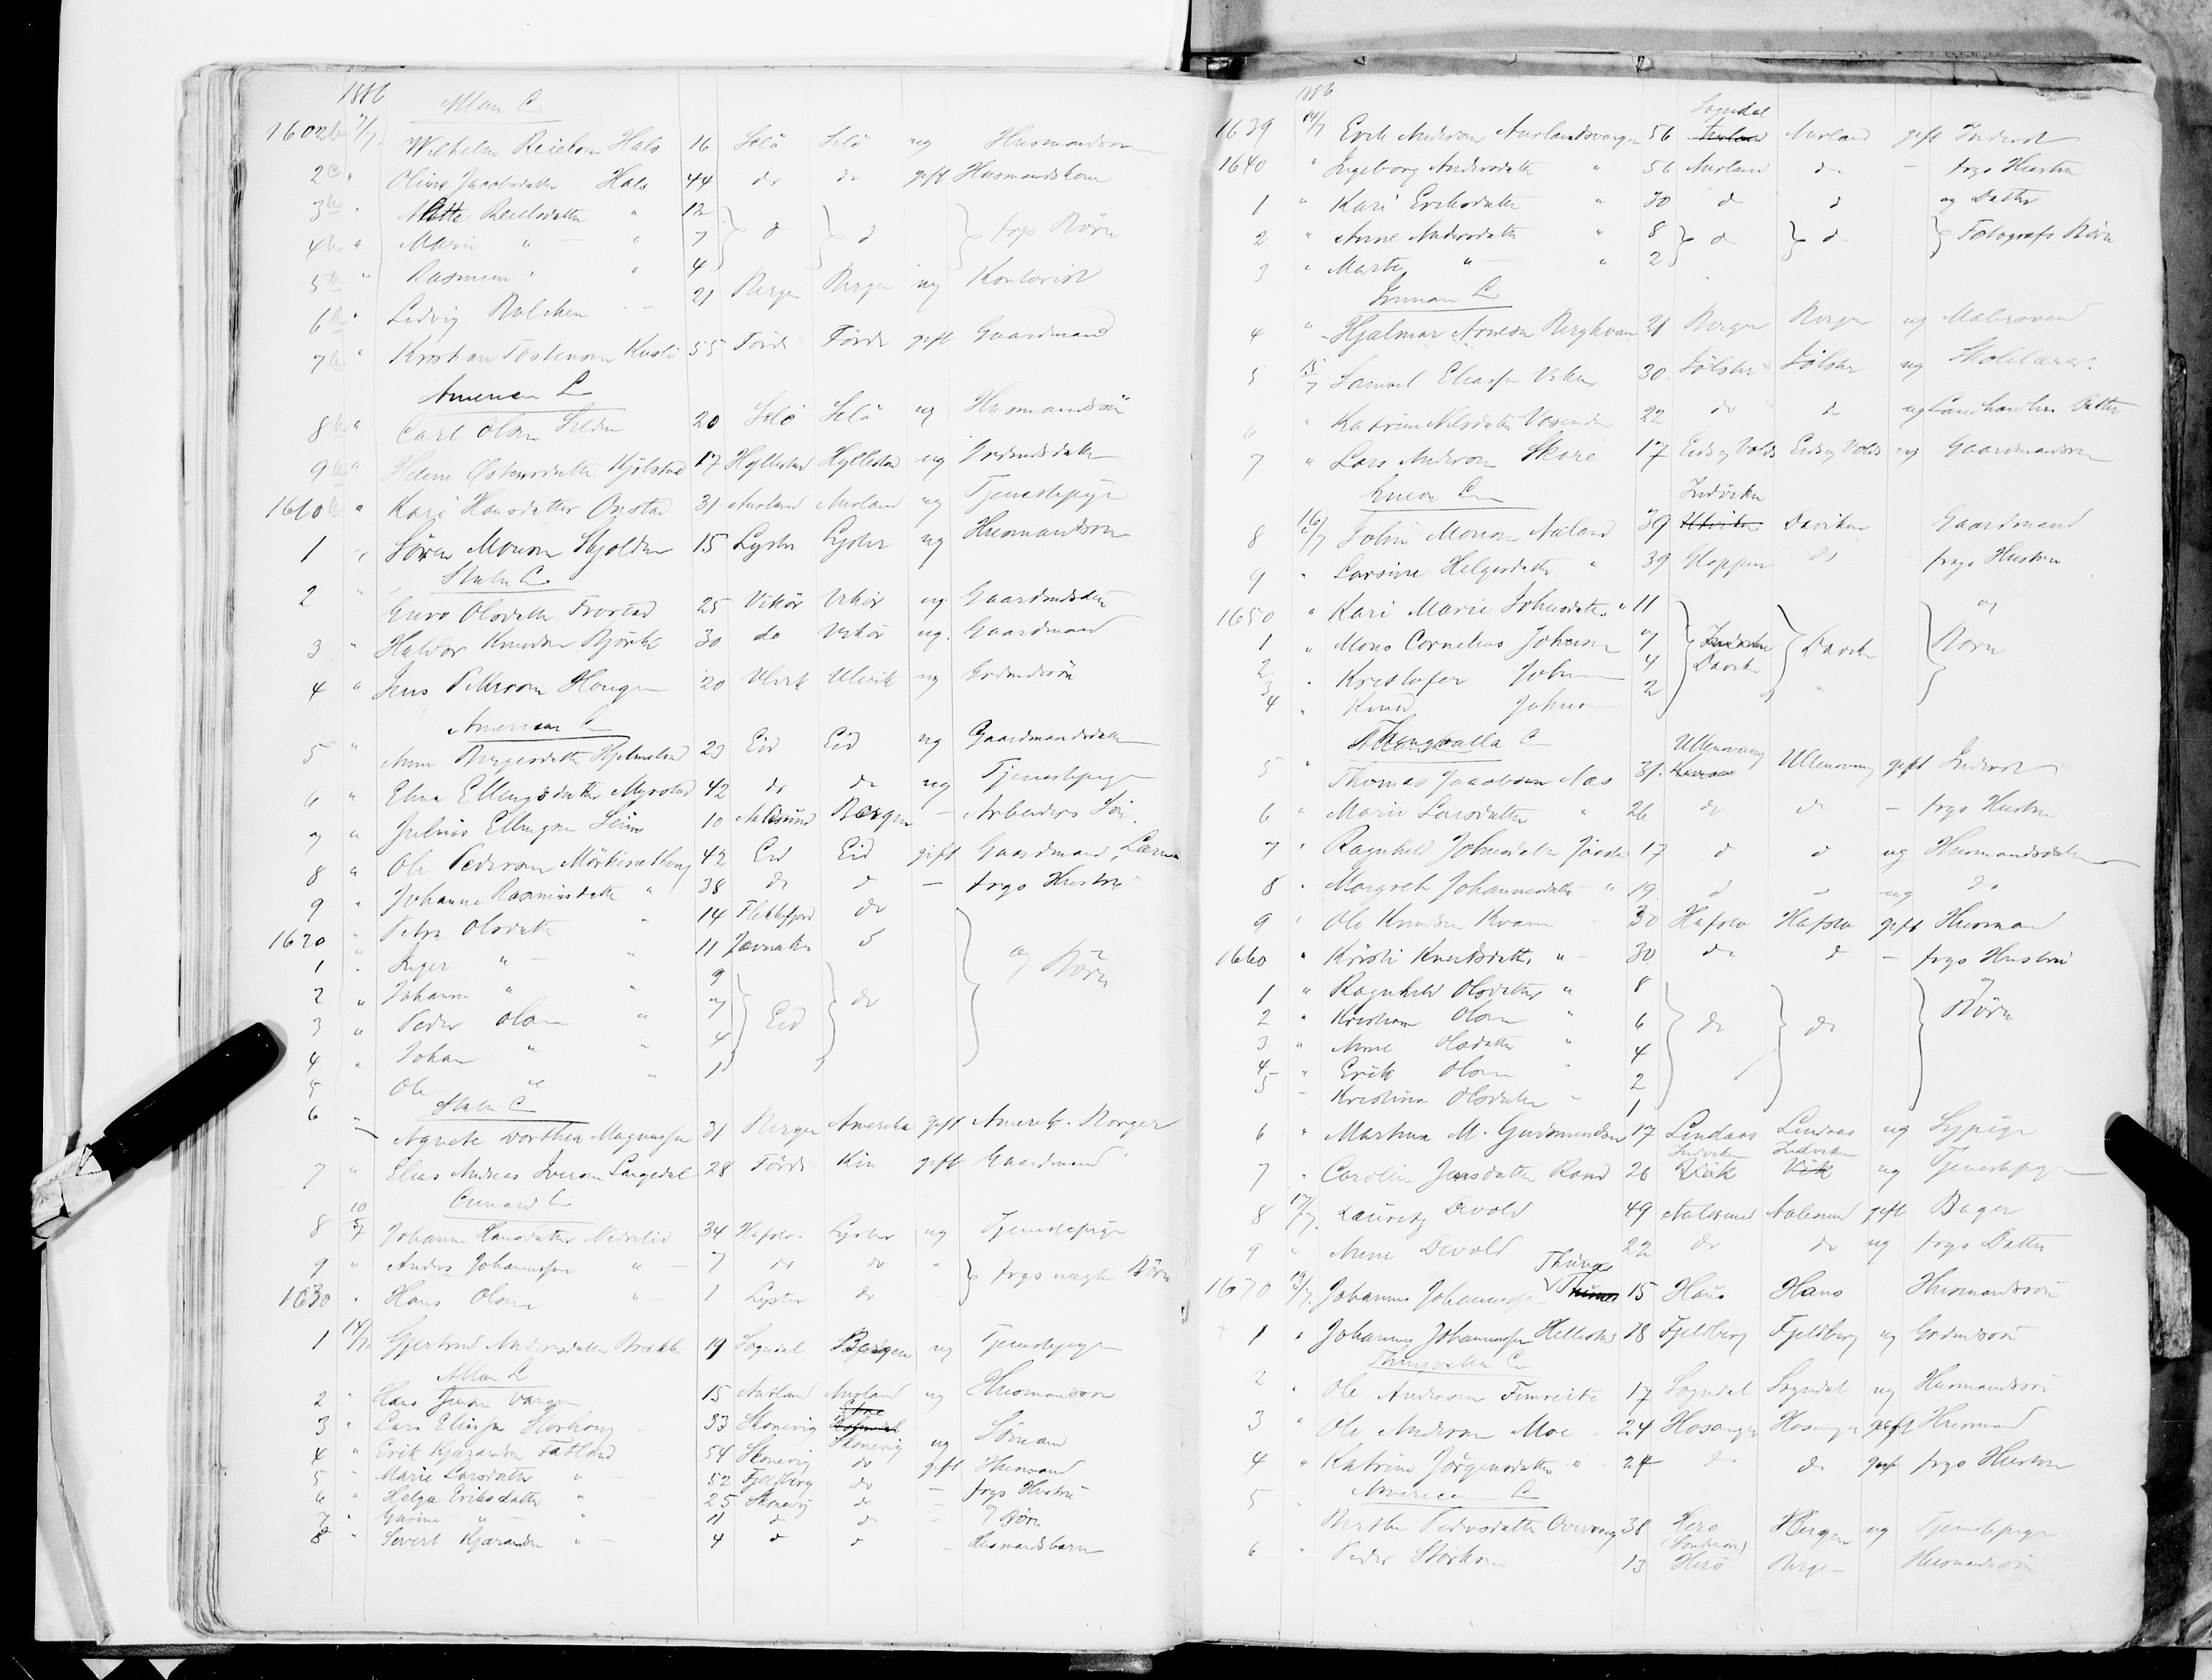 1886
Allan L
1602b 7/7 Wilhelm Reielsen Hals 16 Selö Selö ug Husmandssøn
2c " Oline Jacobsdatter Hals 44 do do gift Husmandskone
3 " Mette Reielsdatter " 12
4 " Marie " " 7 } d } d } frgs Børn
5 " Rasmine " " 4
6 " Ludvig Balchen 21 Bergen Bergen ug Kontorist
7 " Kristian Tostensen Kusli 55 Førde Førde gift Gaardmand
American L
8 " Carl Olsen 20 Selö Selö ug Husmandssøn
9 " Helene Østensdatter Kjölstad 17 Hyllestad Hyllestad ug Grdmdsdatter
1610 " Kari Hansdatter Onstad 31 Aurland Aurland ug Tjenestepige
1 " Sören Monsen Skjolden 15 Lyster Lyster ug Husmandssøn
State L
2 " Guro Olsdatter Frostad 25 Vikör Vikör ug Gaardmdsdtr
3 " Haldor Knudsen Björke 30 do Vikör ug. Gaardmand
4 " Jens Pettersen Haugen 20 Ulvik Ulvik ug Grdmdssøn
American L
5 " Anne Birgersdatter Hjelmeland 23 Eid Eid ug Gaardmandsdatter
6 " Elina Ellingsdatter Myrestad 42 do do ug Tjenestepige
7 " Julius Ellingsen Leim 10 Aalesund Bergen - Arbeiders Søn.
8 " Ole Pedersen Mörkeneshoug 42 Eid Eid gift Gaardmand, Lærer
9 " Johanne Rasmusdatter " 38 do d - frgs Hustru
1620 " Petra Olsdatter " 14 Flekkefjord do
1 " Inger " " 11 Jævnaker d
2 " Johanne " " 9
3 " Peder Olsen " 7 } Eid } do } og Børn
4 " Johan " " 4
5 " Ole " " 1
State L
6 " Agnete Dorthea Magnussen 31 Bergen Amerika gift Amerik. Borger
7 " Elias Andreas Iversen Langedal 28 Førde Kin gift Gaardmand
Cunard L
8 10/7 Johanne Hansdatter Nedrelid 34 Hafslo Lyster ug Tjenestepige
9 " Anders Johannessen " 7 do do " } frgs uægte Børn
1630 " Hans Olsen " 1 Lyster do
1 14/7 Gjertrud Andersdatter Brække 19 Sogndal Bergen ug Tjenestepige
Allan L
2 " Hans Jensen Vangen 15 Aurland Aurland ug Husmandssøn
3 " Lars Eliassen Storhoug 33 Skonevig Etne Skonevig ug Sømand
4 " Erik Kjærandsen Fatland 54 Skonevig do gift Husmand
5 " Marie Larsdatter " 52 Fjeldberg do - frgs Hustru
6 " Helga Eriksdatter " 25 Skonevig do -
7 " Gurine " " 11 d d - og Børn
8 " Severt Kjærandsen " 4 d d - Husmandsbarn
1886
1639 14/7 Erik Andersen Aurlandsvangen 56 Sogndal Aurland gift Inderst
1640 " Ingeborg Andersdatter " 56 Aurland do - frgs Hustru
1 " Kari Eriksdatter " 30 d d og Datter
2 " Anne Andersdatter " 8 } d } d } Fotografs Børn
3 " Marte " " 2
Inman L
4 " Hjalmar Arnesen Bergkvam 21 Bergen Bergen ug Malersvend
5 15/7 Samuel Eliassen Viken 30. Jölster Jölster ug Skolelærer.
6 " Katrine Nilsdatter Vasenden 22 do d ug Landhandlers Datter
7 " Lars Andersen Skare 17 Eids og Volds Eids og Volds ug Gaardmandssøn
Guion L
8 16/7 John Monsen Aaland 39 Indviken Daviken Gaardmand
9 " Larsine Helgesdatter " 39 Gloppen do frgs Hustru
1650 " Kari Marie Johnsdatter " 11
1 " Mons Cornelius Johnsen 7 } Indviken } Davik } og Børn
2 " Kristofer Johnsen 4 Davik
3 4 " Knud Johnsen 2
Thingvalla L
5 " Thomas Jacobsen Næs 31. Ullensvang Ullensvang gift Inderst
6 " Marie Larsdatter " 26 do do - frgs Hustru
7 " Ragnhild Johnsdatter Jaastad 17 d d ug Husmandsdatter
8 " Margrete Johannesdatter " 19 d d ug do
9 " Ole Knudsen Kvam 30 Hafslo Hafslo gift Husmand
1660 " Kristi Knudsdatter " 30 do d - frgs Hustru
1 " Ragnhild Olsdatter " 8
2 " Kristian Olsen " 6 } do } do } og Børn
3 " Anne Olsdatter " 4
4 " Erik Olsen " 2
5 " Kristina Olsdatter " 1
6 " Martina M. Gudmundsen 17 Lindaas Lindaas ug Sypige
7 " Caroline Jensdatter Rand 26 Indviken Vik Indviken Vik ug Tjenestepige
8 17/7 Lauritz Devold 49 Aalesund Aalesund gift Bager
9 " Anne Devold 22 do do ug frgs Datter
1670 19/7 Johannes Johannessen Thunes 15 Haus Haus Husmandssøn
1 " Johannes Johannessen Hellestø 18 Fjeldberg Fjeldberg ug Grdmdssøn
Thingvalla L
2 " Ole Andersen Fimreite 17 Sogndal Sogndal ug Husmandssøn
3 " Ole Andersen Moe 24 Hosanger Hosanger gift Husmand
4 " Katrine Jörgensdatter " 24 do do gift frgs Hustru
American L
5 " Berthe Pedersdatter Overvaag 38 Herø (Søndmør) Bergen ug Tjenestepige
6 " Peder Storksen 13 Herö Bergen Husmandssøn